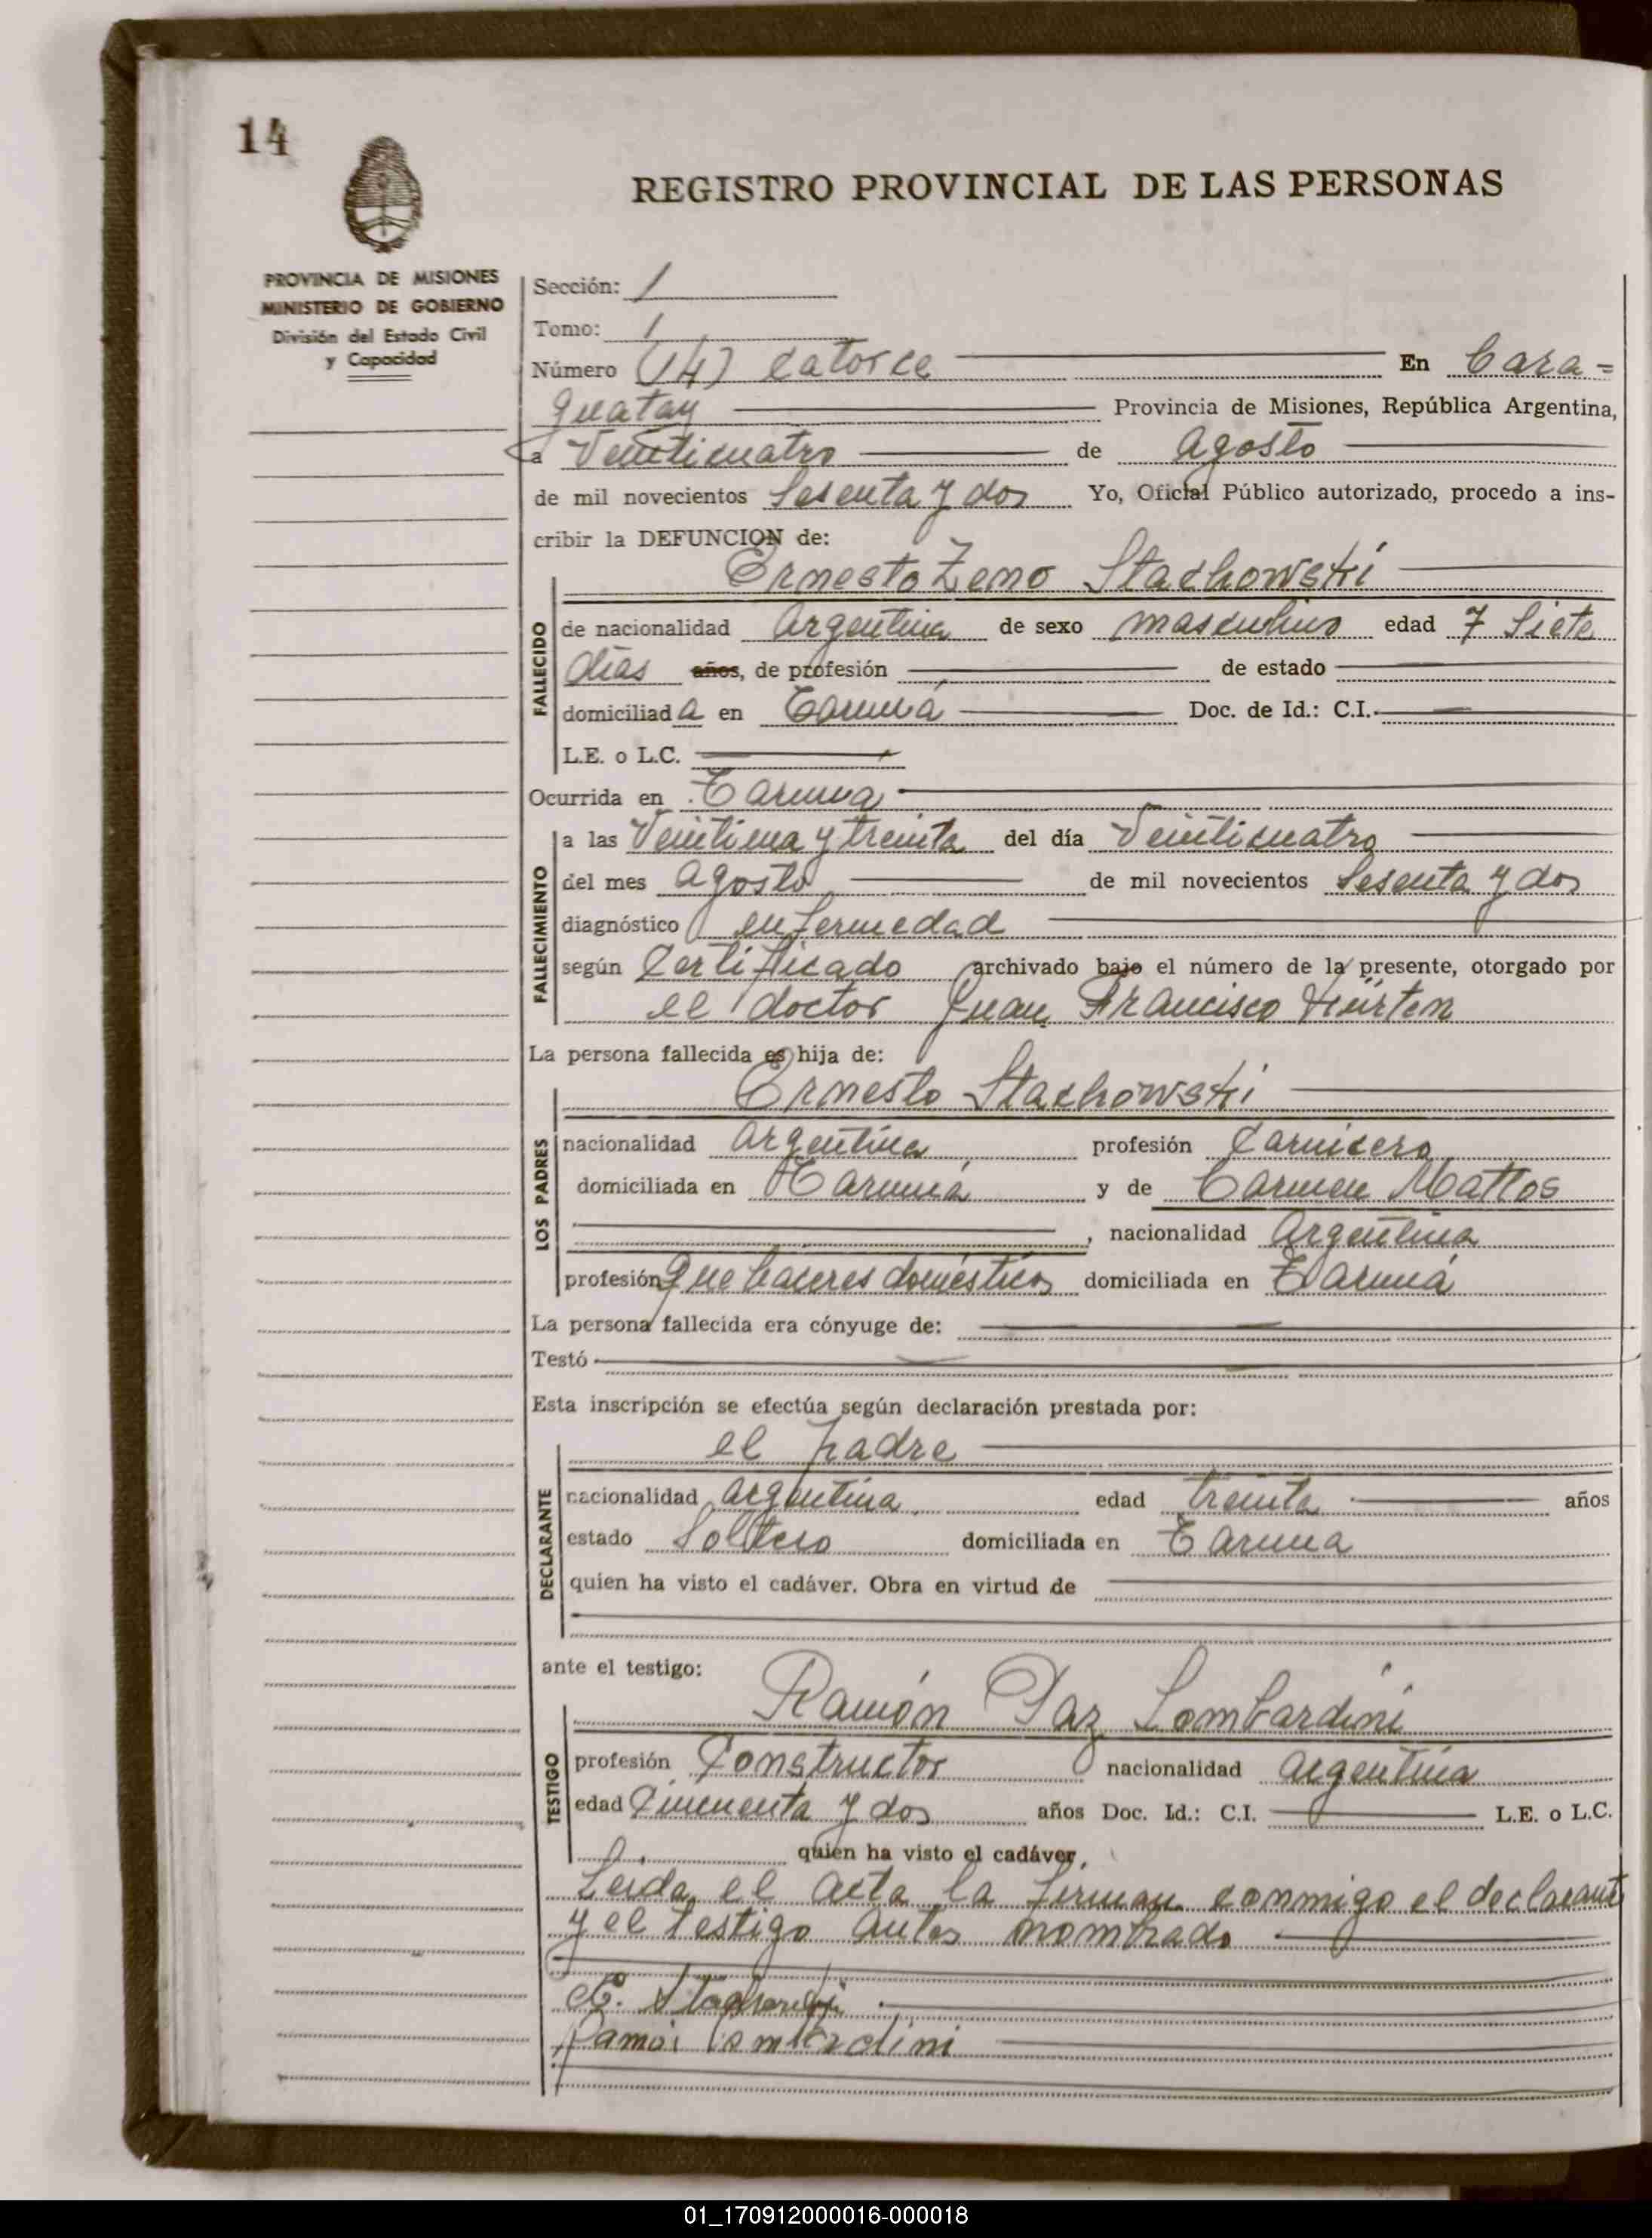 14
REGISTRO PROVINCIAL DE LAS PERSONAS
PROVINCIA DE MISIONES
MINISTERIO DE GOBIERNO
División del Estado Civil
y Capacidad
Sección: 1
Tomo: 1
Número (14) Catorce En Cara=
guatay Provincia de Misiones, República Argentina,
a Veinticuatro de Agosto
de mil novecientos Sesenta y dos Yo, Oficial Público autorizado, procedo a ins-
cribir la DEFUNCION de:
Ernesto Zeno Stachowski
FALLECIDO
de nacionalidad Argentina de sexo masculino edad 7 Siete
días años, de profesión de estado
domiciliada en Tarumá Doc. de Id.: C.I.
L.E. o L.C.
Ocurrida en Taruma
FALLECIMIENTO
a las Veintiuna y treinta del día Veinticuatro
del mes Agosto de mil novecientos Sesenta y dos
diagnóstico enfermedad
según Certificado archivado bajo el número de la presente, otorgado por
el doctor Juan Francisco Hürten
La persona fallecida es hija de:
Ernesto Stachowski
LOS PADRES
nacionalidad Argentina profesión Carnicero
domiciliada en Tarumá y de Carmen Mattos
, nacionalidad Argentina
profesión que haceres domésticos domiciliada en Tarumá
La persona fallecida era cónyuge de:
Testó
Esta inscripción se efectúa según declaración prestada por:
el padre
DECLARANTE
nacionalidad argentina edad treinta años
estado Soltero domiciliada en Taruma
quien ha visto el cadáver. Obra en virtud de
ante el testigo:
Ramón Paz Lombardini
TESTIGO
profesión Constructor nacionalidad argentina
edad Cincuenta y dos años Doc. Id.: C.I. L.E. o L.C.
quien ha visto el cadáver,
Leida el acta la firman conmigo el declarante
y el testigo antes nombrado
E. Stachowski
Ramon Lombardini
01_170912000016-000018